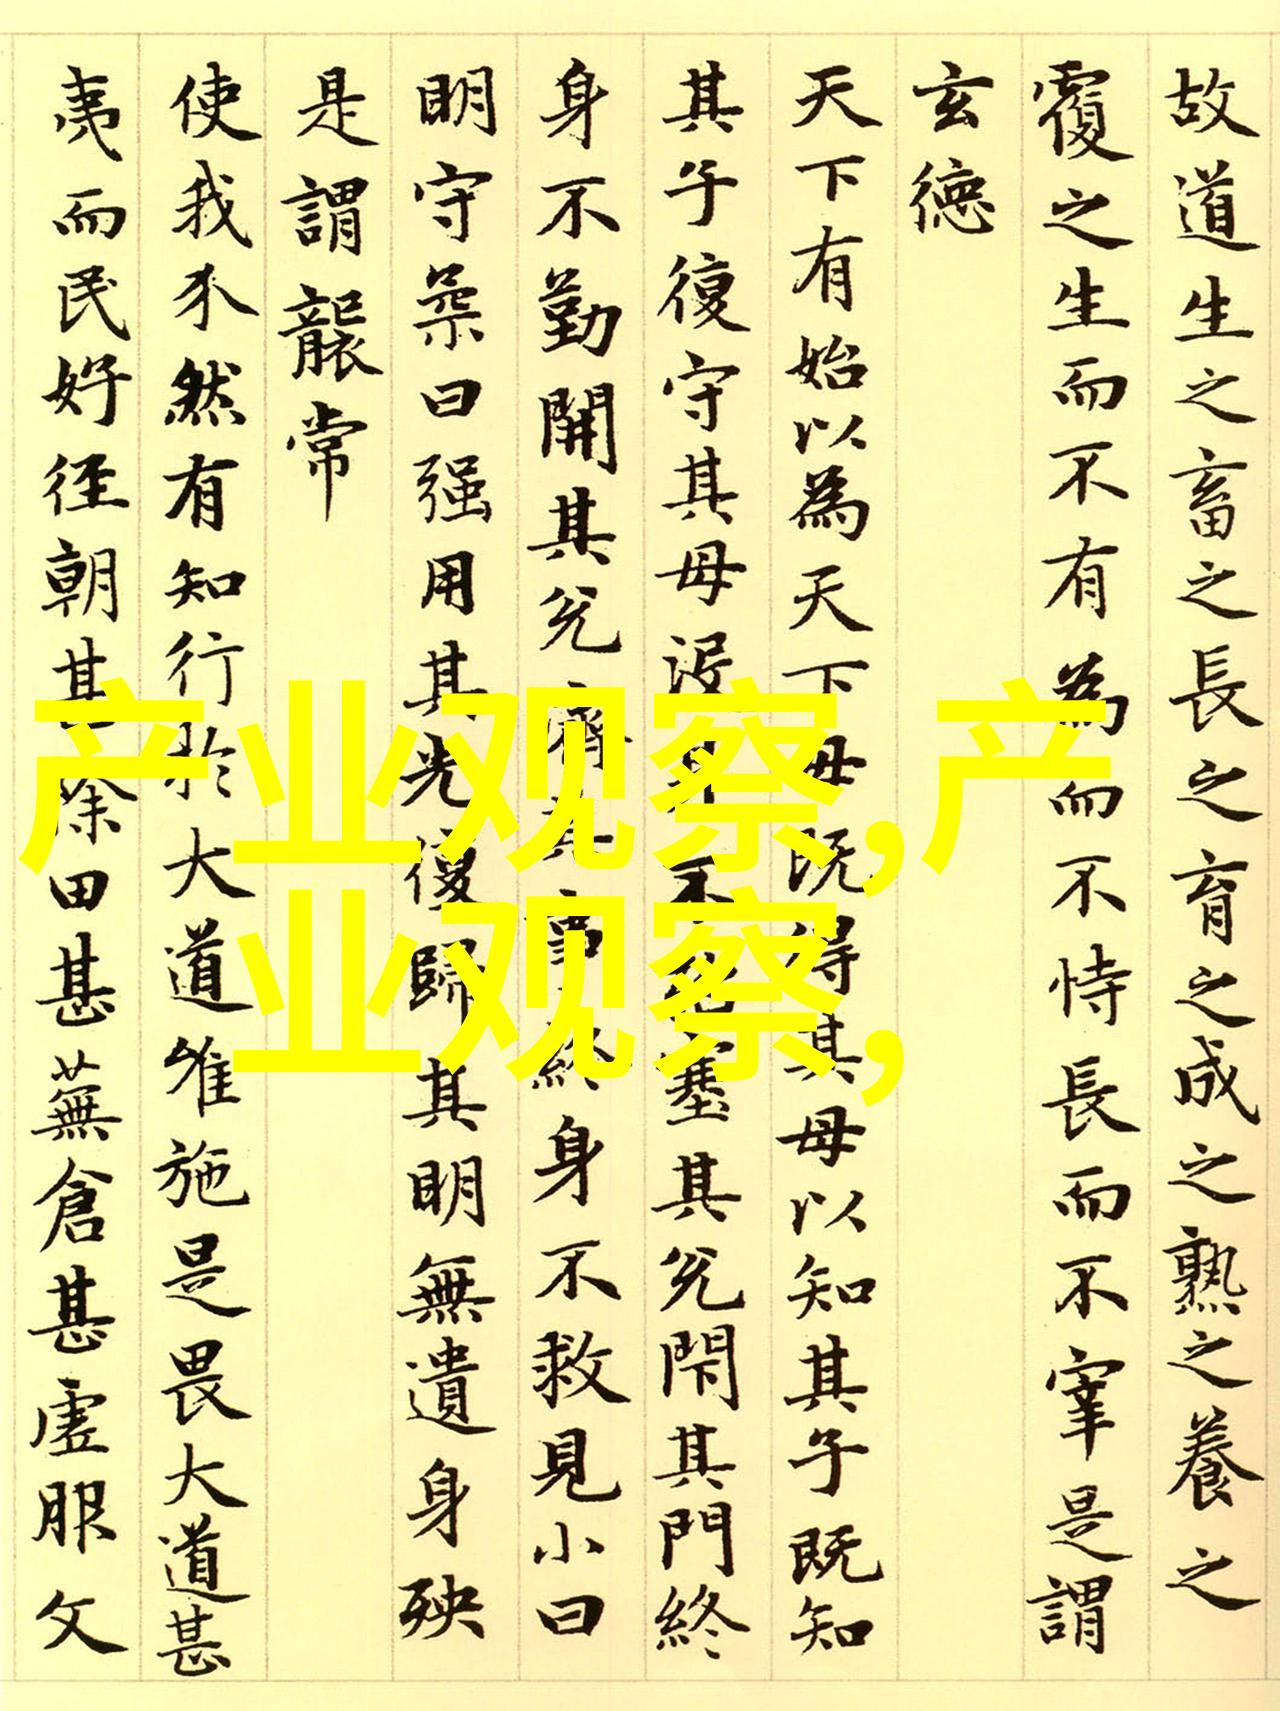 故道生之畜之長之育之成之熟之養之
覆之生而不有為而不恃長而不宰是謂
玄德
天下有始以為天下母既得其母以知其子既知
其子復守其母没身不殆塞其兊閇其門終
身不勤開其兊濟其事終身不救見小曰
明守柔曰强用其光復歸其明無遺身殃
是謂襲常
使我介然有知行於大道唯施是畏大道甚
夷而民好徑朝甚除田甚蕪倉甚虛服文
产业观察,产
业观察,